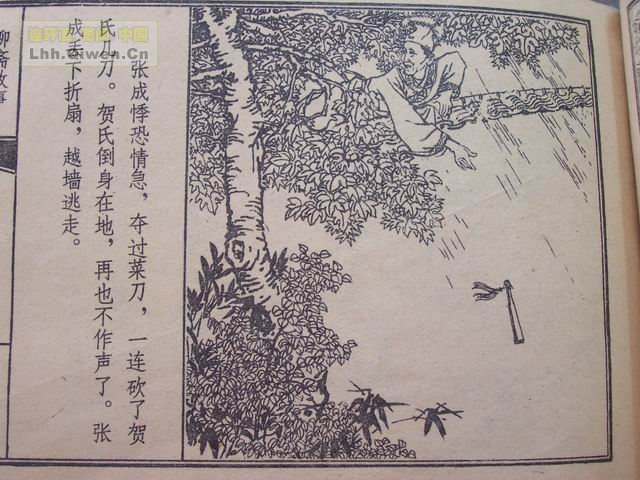 张成悖恐情急，夺过菜刀，一连砍了贺
氏几刀。贺氏倒身在地，再也不作声了。张
成丢下折扇，越墙逃走。
聊斋故事
连环画
中国